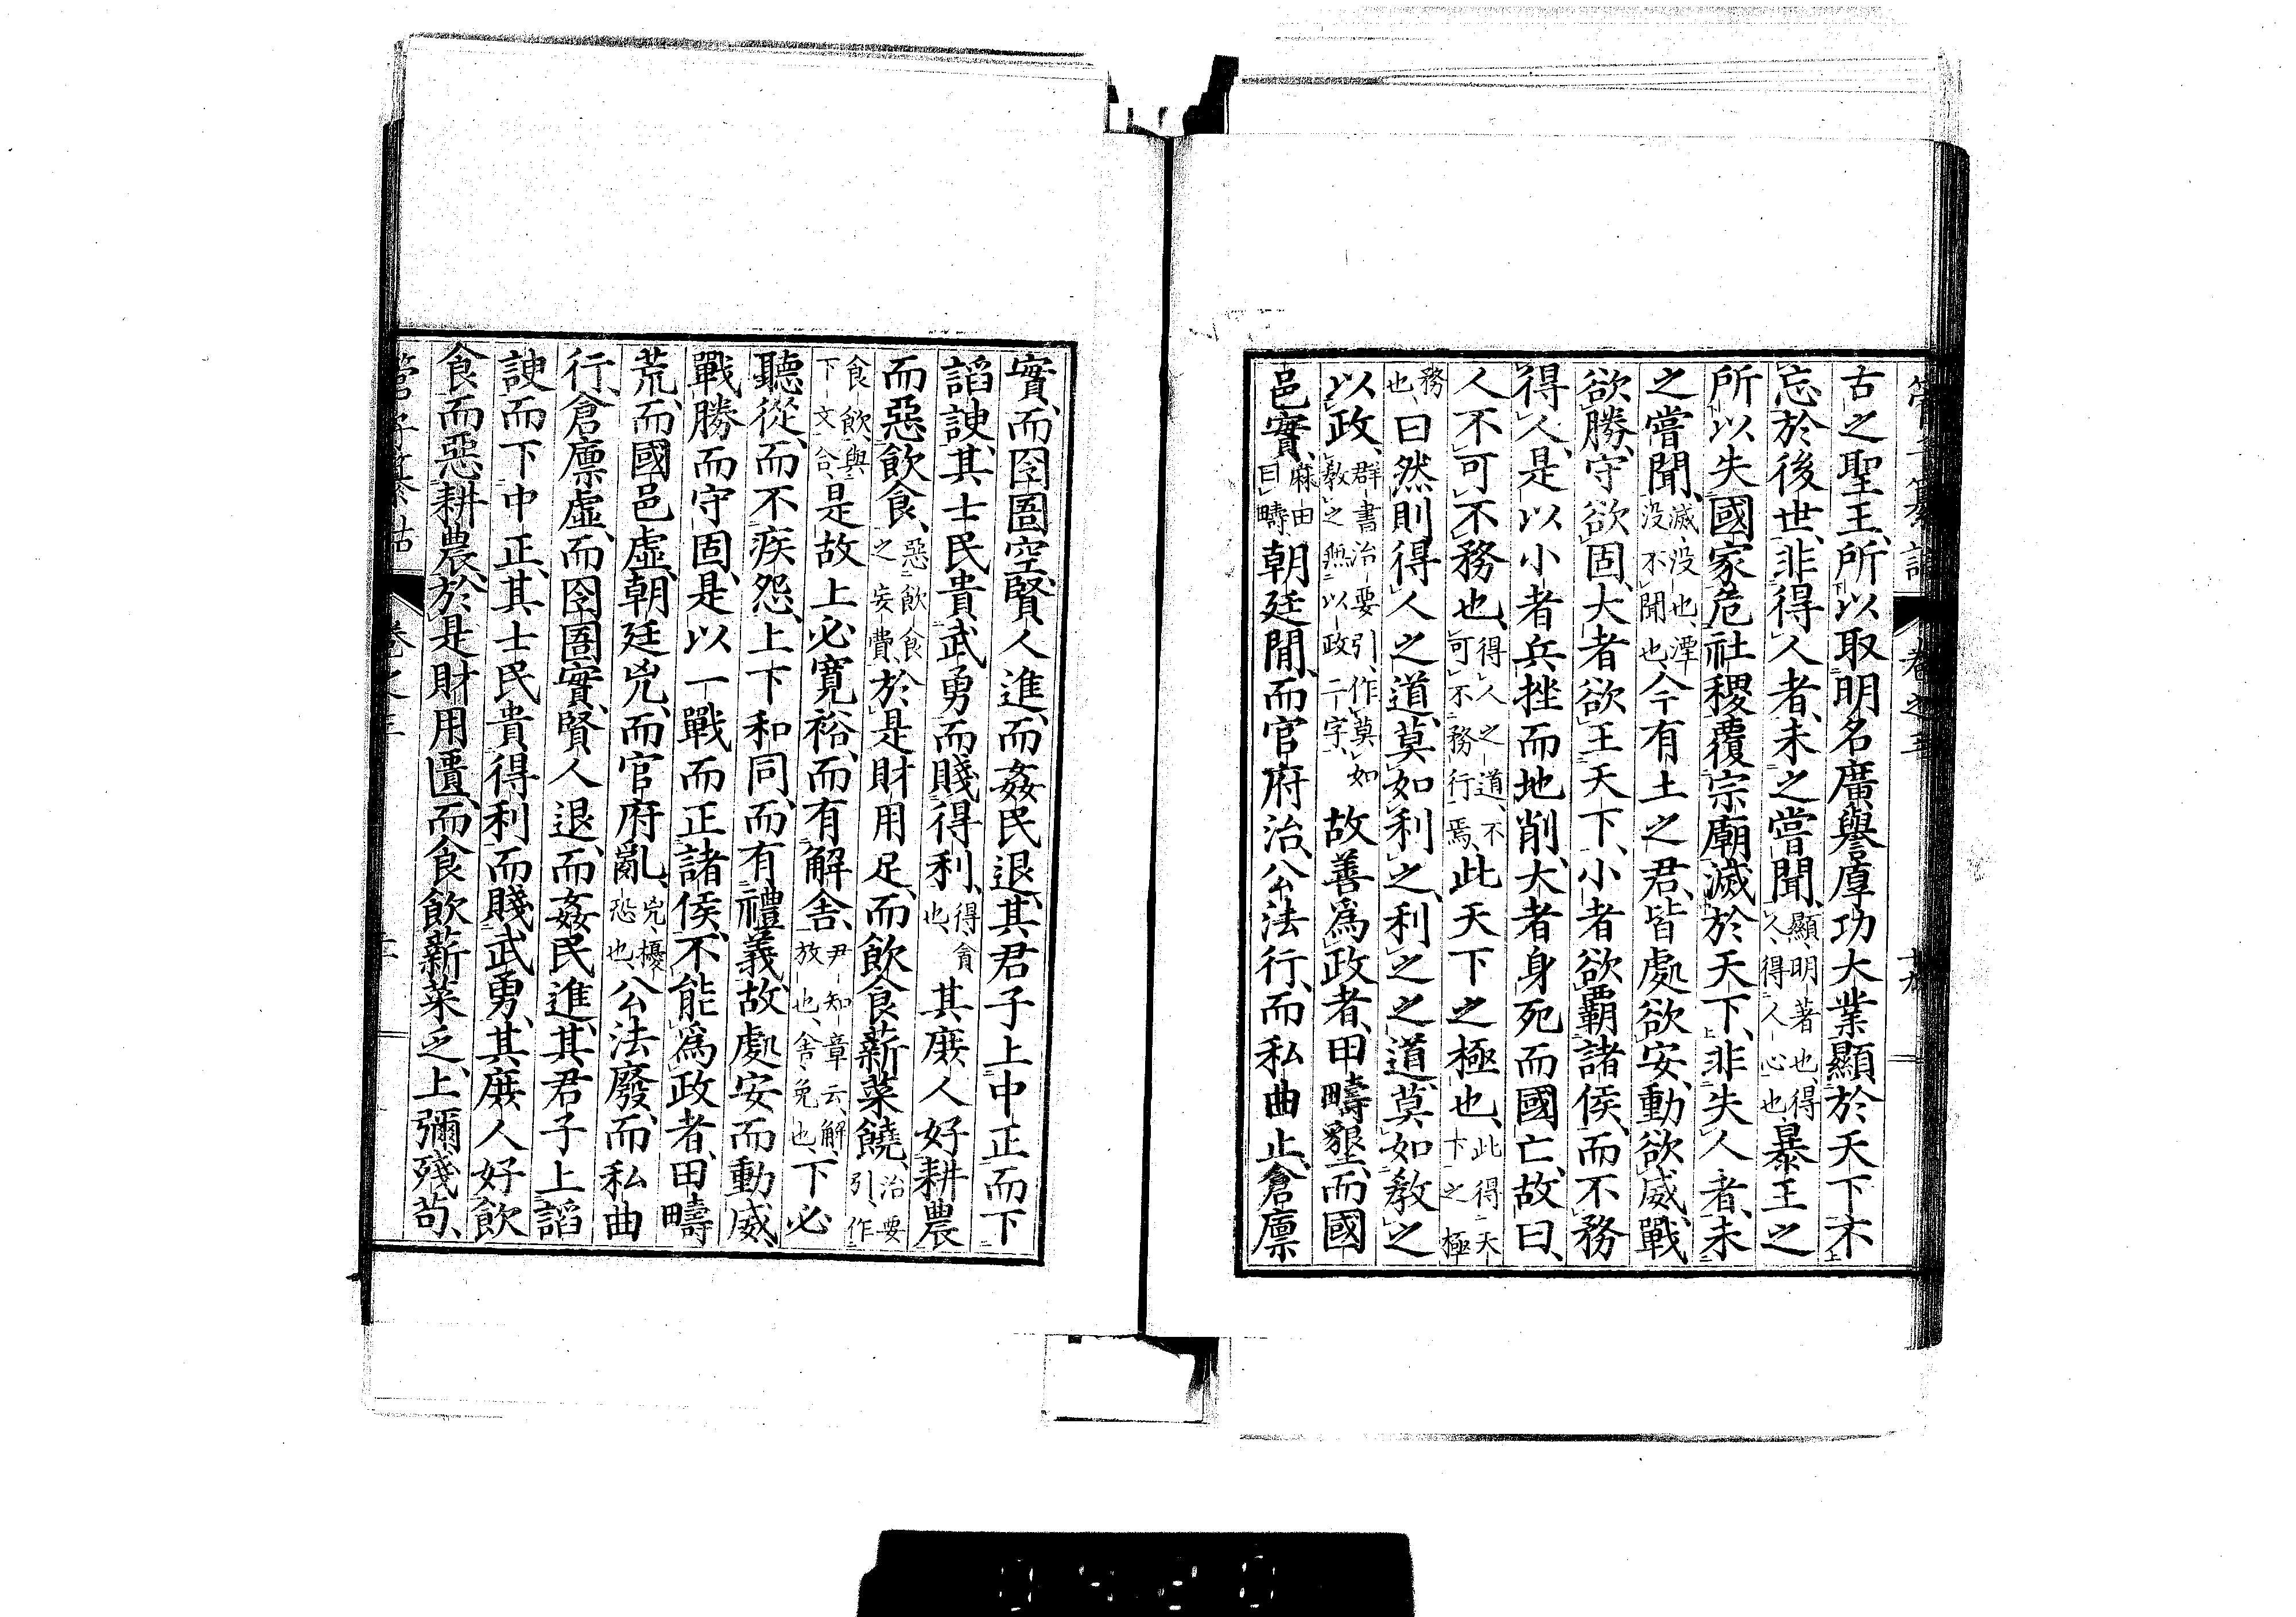 管子纂詁 卷之三 十九
古之聖王、所以取明名廣譽、厚功大業、顯於天下、不
忘於後世、非得人者、未之嘗聞、顯、明著也、得人、得人心也、暴王之
所以失國家、危社稷、覆宗廟、滅於天下、非失人者、未
之嘗聞、滅、没也、潭没不聞也、今有土之君、皆處欲安、動欲威、戰
欲勝、守欲固、大者欲王天下、小者欲霸諸侯、而不務
得人、是以小者兵挫而地削、大者身死而國亡、故曰、
人不可不務也、得人之道、不可不務行焉、此天下之極也、此得天下之極
務也、曰然則得人之道、莫如利之、利之之道、莫如教之
以政、群書治要引、作莫如教之無以政二字、故善爲政者、田疇墾、而國
邑實、麻由曰疇、朝廷閒、而官府治、公法行、而私曲止、倉廩
實、而囹圄空、賢人進、而姦民退、其君子上中正而下
諂諛、其士民貴武勇而賤得利、得、貪也、其庶人好耕農
而惡飲食、惡飲食之妄費、於是財用足、而飲食薪菜饒、治要引、作
食飲、與下文合、是故上必寛裕、而有解舍、尹知章云、解、放也、舍、免也、下必
聽從、而不疾怨、上下和同、而有禮義、故處安而動威、
戰勝而守固、是以一戰而正諸侯、不能爲政者、田疇
荒、而國邑虛、朝廷兇、而官府亂、兇、擾恐也、公法廢、而私曲
行、倉廩虛、而囹圄實、賢人退、而姦民進、其君子上諂
諛而下中正、其士民貴得利而賤武勇、其庶人好飲
食而惡耕農、於是財用匱、而食飲薪菜乏、上彌殘苟、
管子纂詁 卷之三